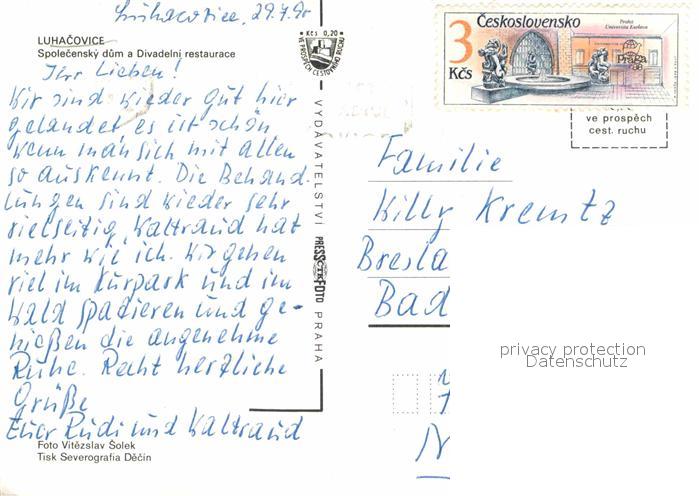 Luhačovice, 29.7.90
LUHAČOVICE
Společenský dům a Divadelní restaurace
Ihr Lieben!
Wir sind wieder gut hier
gelandet es ist schön
wenn man sich mit allen
so auskennt. Die Behand-
lungen sind wieder sehr
vielseitig, Waltraud hat
mehr wie ich. Wir gehen
viel im Kurpark und im
Wald spazieren und ge-
nießen die angenehme
Ruhe. Recht herzliche
Grüße
Euer Rudi und Waltraud
Foto Vítězslav Šolek
Tisk Severografia Děčín
Kčs 0,20
VE PROSPĚCH CESTOVNÍHO RUCHU
VYDAVATELSTVÍ PRESSFOTO PRAHA
Československo
3
Kčs
Praha
Univerzita Karlova
PRAGA
88
ve prospěch
cest. ruchu
Familie
Willy Kremtz
Bresla
Bad
privacy protection
Datenschutz